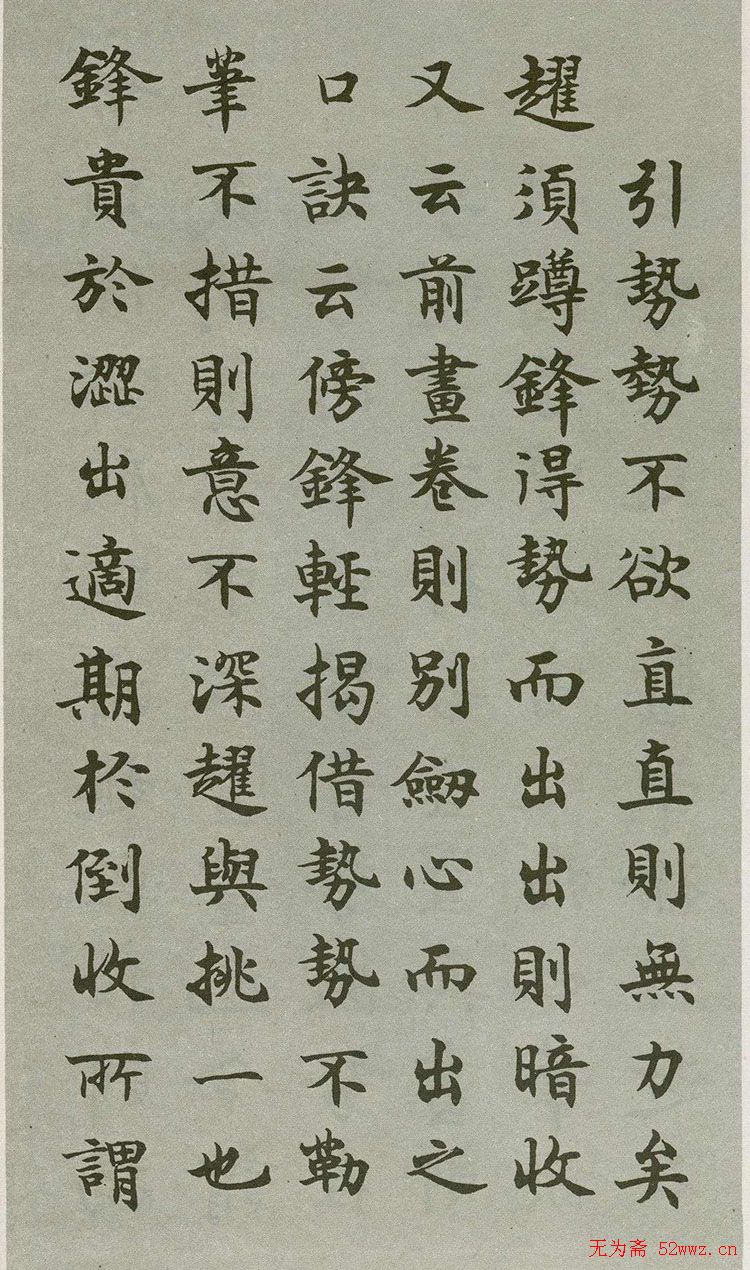 引勢勢不欲直直則無力矣
趯須蹲鋒得勢而出出則暗收
又云前畫卷則別斂心而出之
口訣云傍鋒輕揭借勢勢不勒
筆不措則意不深趯與挑一也
鋒貴於澀出適期於倒收所謂
无为斋 52wwz.cn